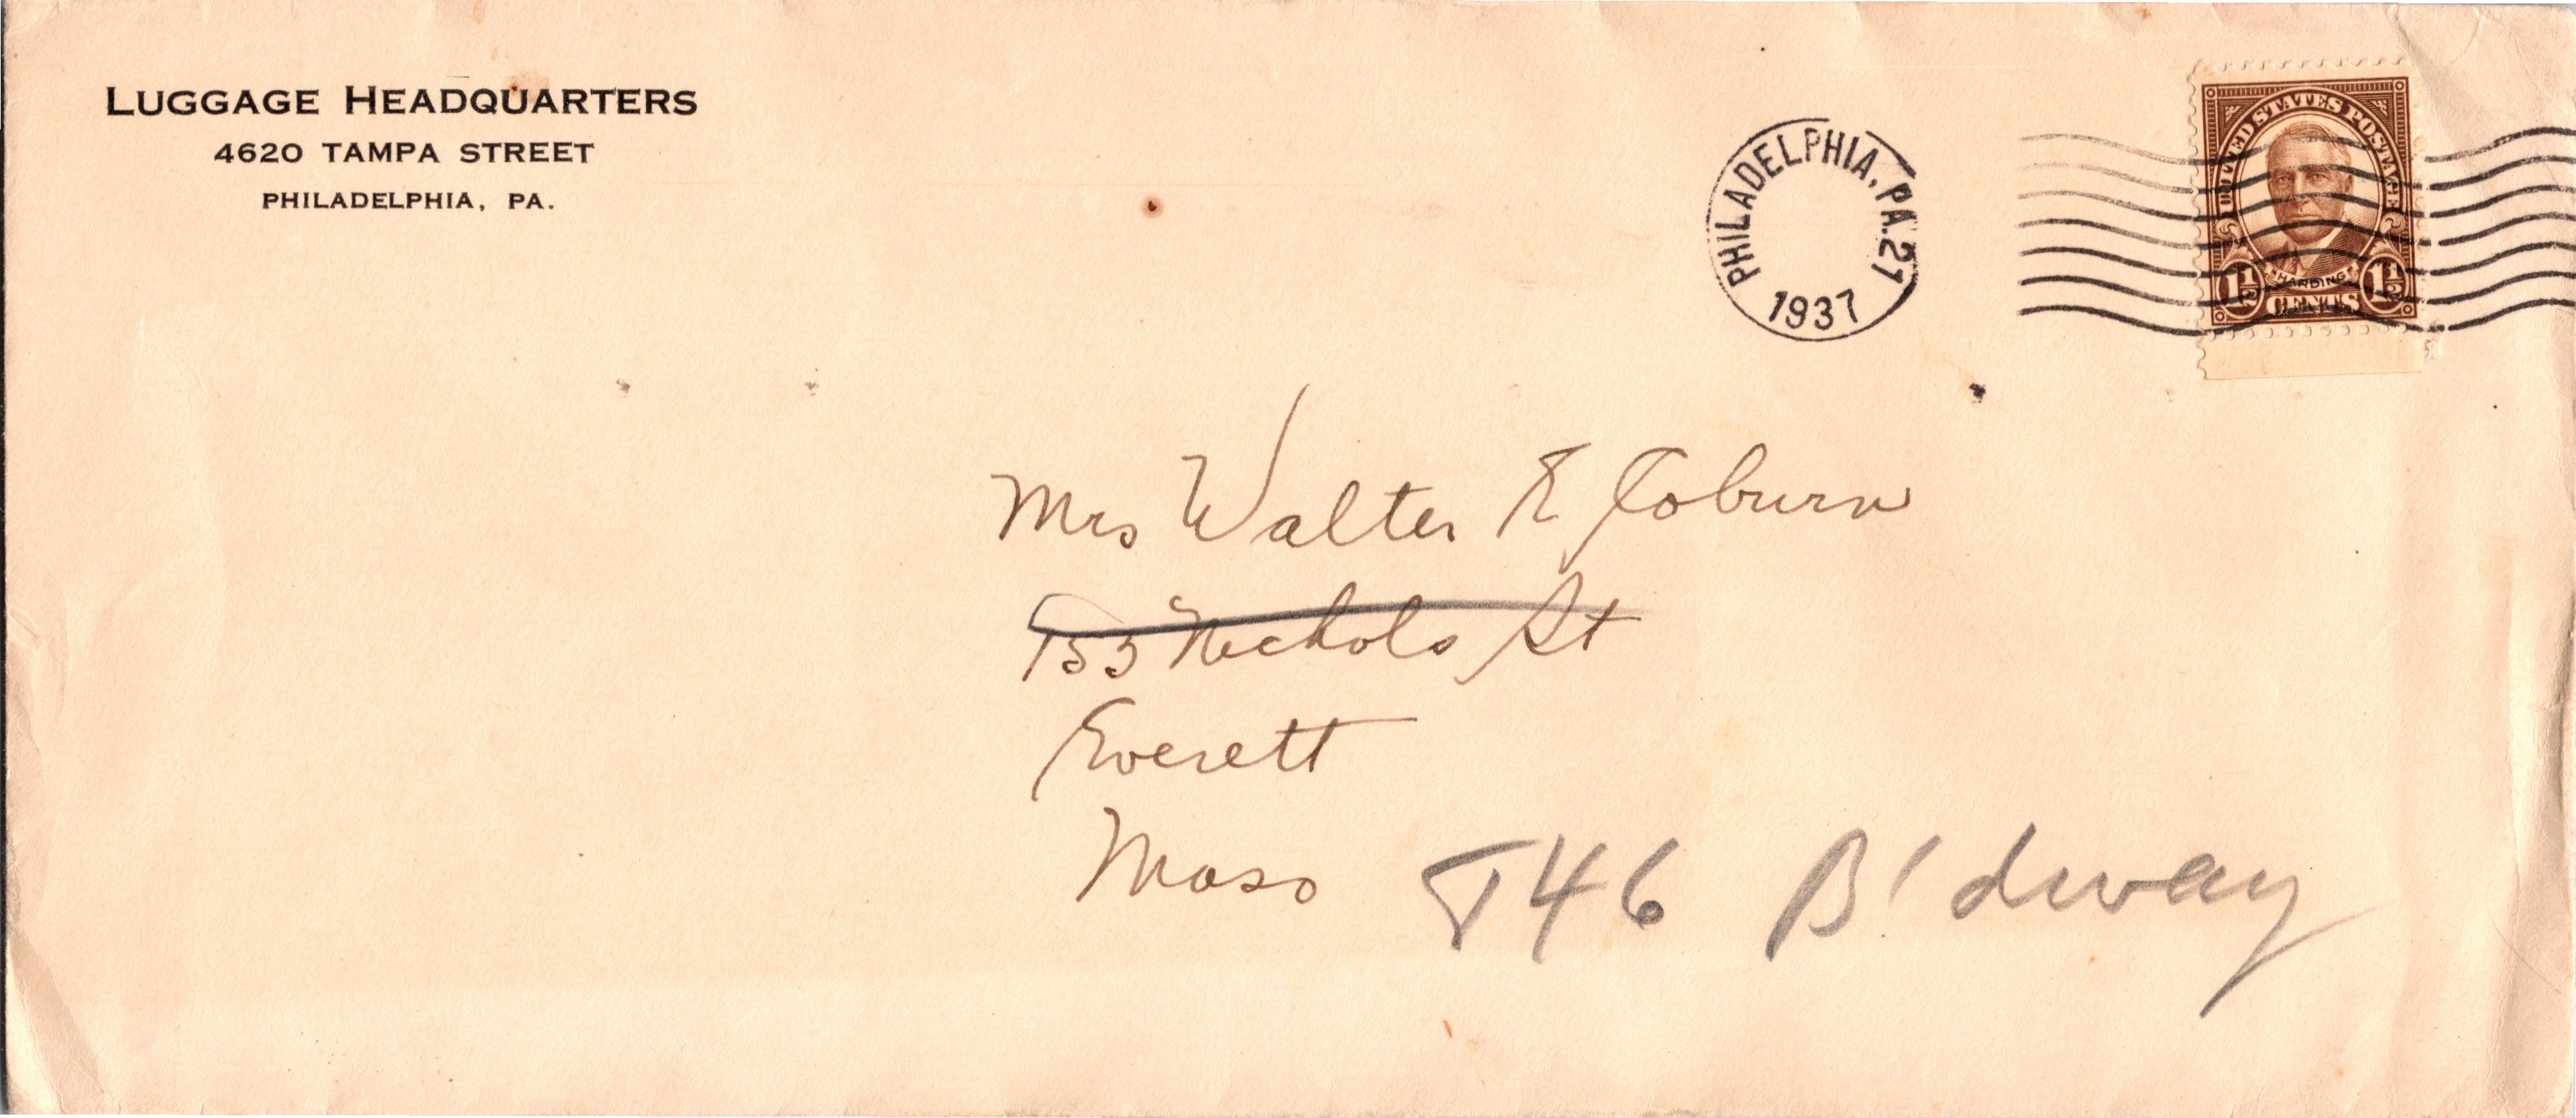 LUGGAGE HEADQUARTERS
4620 TAMPA STREET
PHILADELPHIA, PA.
PHILADELPHIA, PA. 21
1937
UNITED STATES POSTAGE
HARDING
1½ CENTS 1½
Mrs Walter E Coburn
153 Nichols St
Everett
Mass
746 B'dway